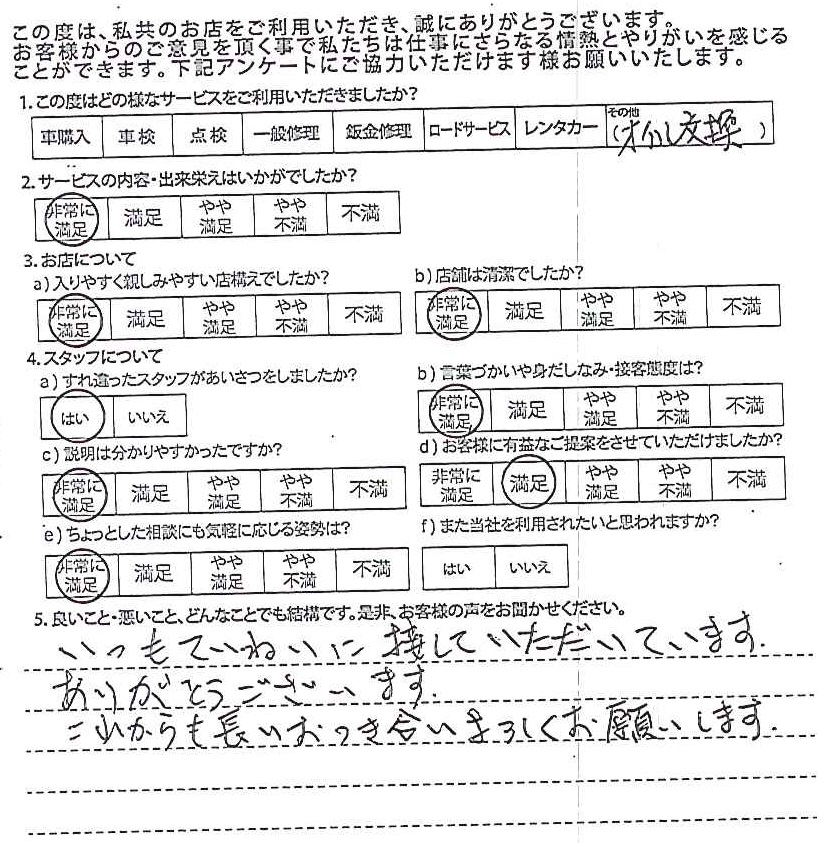 この度は、私共のお店をご利用いただき、誠にありがとうございます。
お客様からのご意見を頂く事で私たちは仕事にさらなる情熱とやりがいを感じる
ことができます。下記アンケートにご協力いただけます様お願いいたします。
1.この度はどの様なサービスをご利用いただきましたか?
車購入 車検 点検 一般修理 鈑金修理 ロードサービス レンタカー その他(オイル交換)
2.サービスの内容・出来栄えはいかがでしたか?
非常に満足 満足 やや満足 やや不満 不満
3.お店について
a)入りやすく親しみやすい店構えでしたか?
非常に満足 満足 やや満足 やや不満 不満
b)店舗は清潔でしたか?
非常に満足 満足 やや満足 やや不満 不満
4.スタッフについて
a)すれ違ったスタッフがあいさつをしましたか?
はい いいえ
b)言葉づかいや身だしなみ・接客態度は?
非常に満足 満足 やや満足 やや不満 不満
c)説明は分かりやすかったですか?
非常に満足 満足 やや満足 やや不満 不満
d)お客様に有益なご提案をさせていただけましたか?
非常に満足 満足 やや満足 やや不満 不満
e)ちょっとした相談にも気軽に応じる姿勢は?
非常に満足 満足 やや満足 やや不満 不満
f)また当社を利用されたいと思われますか?
はい いいえ
5.良いこと・悪いこと、どんなことでも結構です。是非、お客様の声をお聞かせください。
いつもていねいに接していただいています.
ありがとうございます.
これからも長いおつき合いよろしくお願いします.